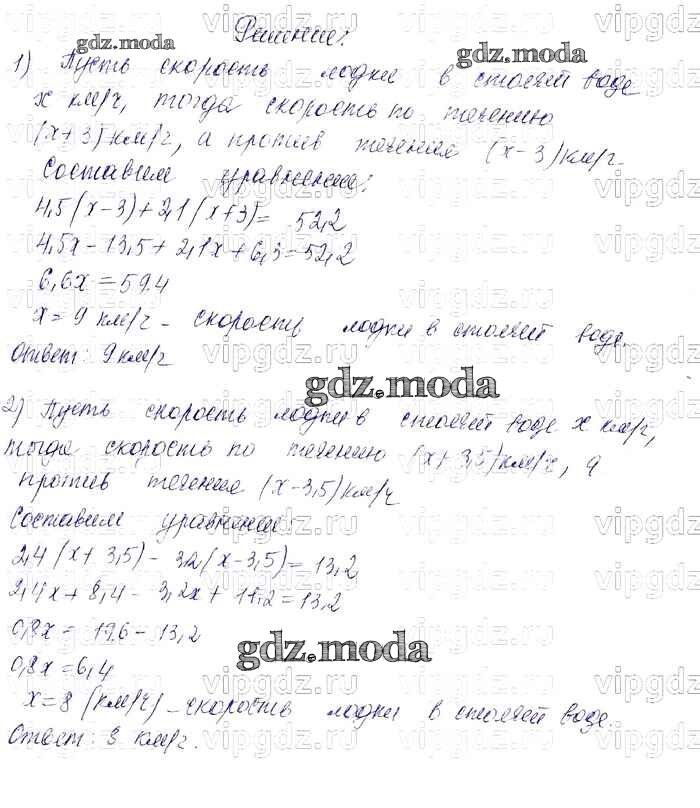 Решение:
1) Пусть скорость лодки в стоячей воде
x км/ч, тогда скорость по течению
(x+3) км/ч, а против течения (x-3) км/ч.
Составим уравнение:
4,5(x-3)+2,1(x+3)= 52,2
4,5x-13,5+2,1x+6,3=52,2
6,6x=59.4
x=9 км/ч - скорость лодки в стоячей воде.
Ответ: 9 км/ч
gdz.moda
2) Пусть скорость лодки в стоячей воде x км/ч,
тогда скорость по течению (x+3,5) км/ч, а
против течения (x-3,5) км/ч
Составим уравнение:
2,4(x+3,5)-3,2(x-3,5)=13,2
2,4x+8,4-3,2x+11,2=13,2
0,8x=19,6-13,2
0,8x=6,4
x=8 (км/ч) - скорость лодки в стоячей воде.
Ответ: 8 км/ч.
gdz.moda